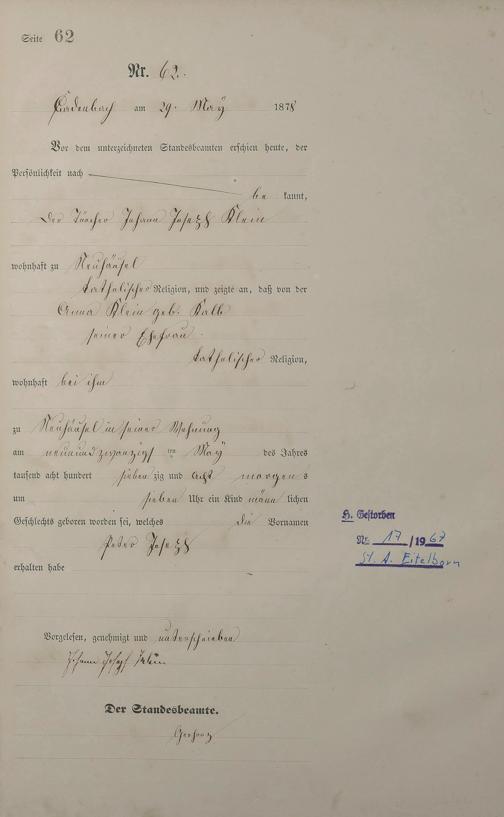 Seite 62
Nr. 62.
Cadenbach am 29. May 1878
Vor dem unterzeichneten Standesbeamten erschien heute, der
Persönlichkeit nach
be kannt,
der Tüncher Johann Joseph Klein
wohnhaft zu Neuhäusel
katholischer Religion, und zeigte an, daß von der
Anna Klein geb. Kalb
seiner Ehefrau
katholischer Religion,
wohnhaft bei ihm
zu Neuhäusel in seiner Wohnung
am neunundzwanzigsten May des Jahres
tausend acht hundert sieben zig und acht morgens
um sieben Uhr ein Kind männ lichen
Geschlechts geboren worden sei, welches die Vornamen
Peter Joseph
erhalten habe
H. Gestorben
Nr. 17 / 1967
St. A. Eitelborn
Vorgelesen, genehmigt und unterschrieben
Johann Joseph Klein
Der Standesbeamte.